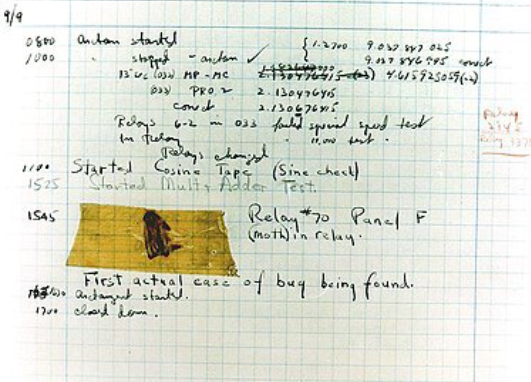 9/9
0800 antan started
1000 " stopped - antan ✓ { 1.2700 9.037 847 025
9.037 846 995 correct
13" uc (032) MP - MC 2.130476415 (-3) 4.615925059 (-2)
(033) PRO 2 2.130476415
correct 2.130676415
Relays 6-2 in 033 failed special speed test
In Relay " 11.000 test.
Relays changed
1100 Started Cosine Tape (Sine check)
1525 Started Mult+ Adder Test.
1545 Relay #70 Panel F
(moth) in relay.
First actual case of bug being found.
1630 antangent started.
1700 closed down.